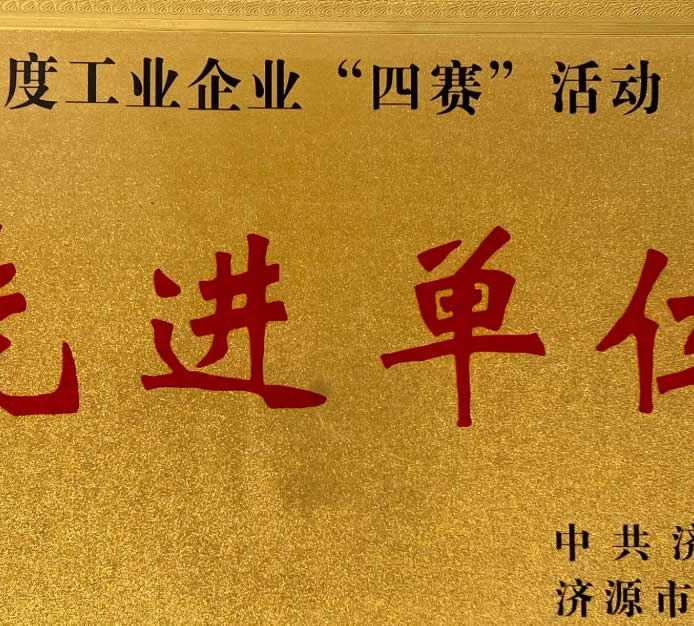 度工业企业“四赛”活动
先进单位
中共济
济源市